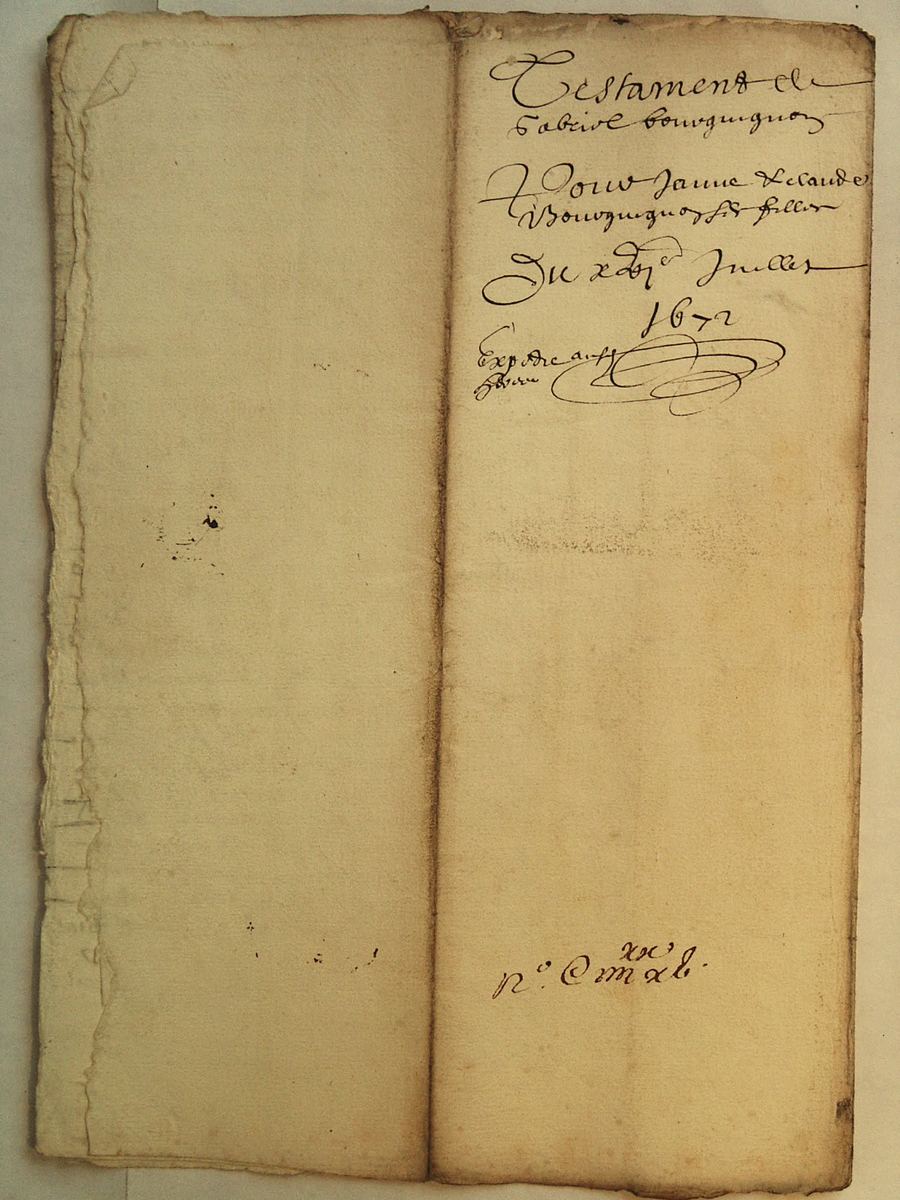 Testament de
Gabriel bourguignon
Pour Janne & claude
Bourguignon ses filles
Du Juillet
1672
Expedie aus
N° C